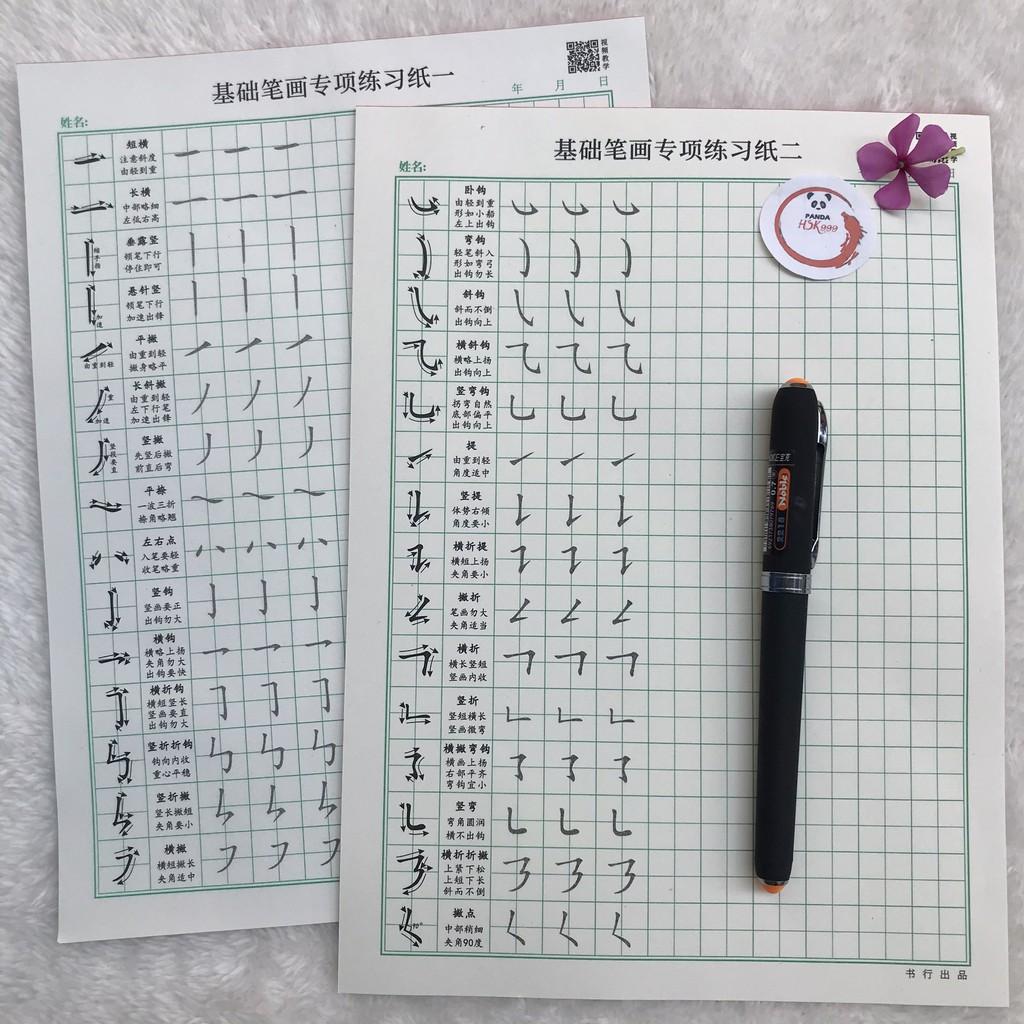 基础笔画专项练习纸一
视频教学
年 月 日
姓名:
短横
注意斜度
由轻到重
长横
中部略细
左低右高
垂露竖
领笔下行
停住即可
悬针竖
加速
领笔下行
加速出锋
平撇
由重到轻
由重到轻
撇身略平
长斜撇
重
加速
由重到轻
左下行笔
加速出锋
竖撇
竖段要直
先竖后撇
前直后弯
平捺
一波三折
捺角略翘
左右点
入笔要轻
收笔略重
竖钩
竖画要正
出钩勿大
横钩
横略上扬
夹角勿大
出钩要快
横折钩
横短竖长
竖画要直
出钩勿大
竖折折钩
钩向内收
重心平稳
竖折撇
竖长撇短
夹角要小
横撇
横短撇长
夹角适中
基础笔画专项练习纸二
姓名:
日
卧钩
由轻到重
形如小船
左上出钩
弯钩
轻笔斜入
形如弯弓
出钩勿长
斜钩
斜而不倒
出钩向上
横斜钩
横略上扬
出钩向上
竖弯钩
拐弯自然
底部偏平
出钩向上
提
由重到轻
角度适中
竖提
体势右倾
角度要小
横折提
横短上扬
夹角要小
撇折
笔画勿大
夹角适当
横折
横长竖短
竖画内收
竖折
竖短横长
竖画微弯
横撇弯钩
横画上扬
右部平齐
弯钩宜小
竖弯
弯角圆润
横不出钩
横折折撇
上紧下松
上短下长
斜而不倒
撇点
90°
中部稍细
夹角90度
书行出品
PANDA
HSK999
2218